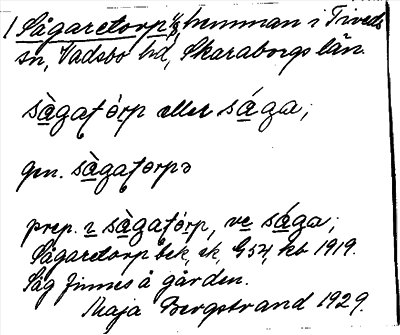 1 Sågaretorp 1/8, hemman i Triveds
sn, Vadsbo hd, Skaraborgs län.
sàgatórp eller sága;
gen. sàgatorpə
prep. ı sàgatórp, ve sága;
Sågaretorp bek, ek, G 54, kb 1919.
Såg finnes å gården.
Maja Bergstrand 1929.